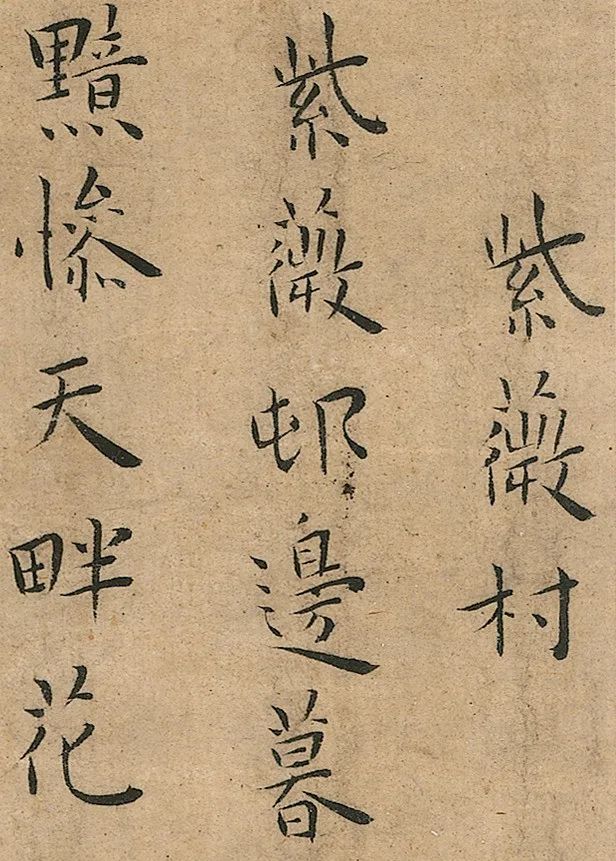 紫薇村
紫薇邨邊暮
黯慘天畔花